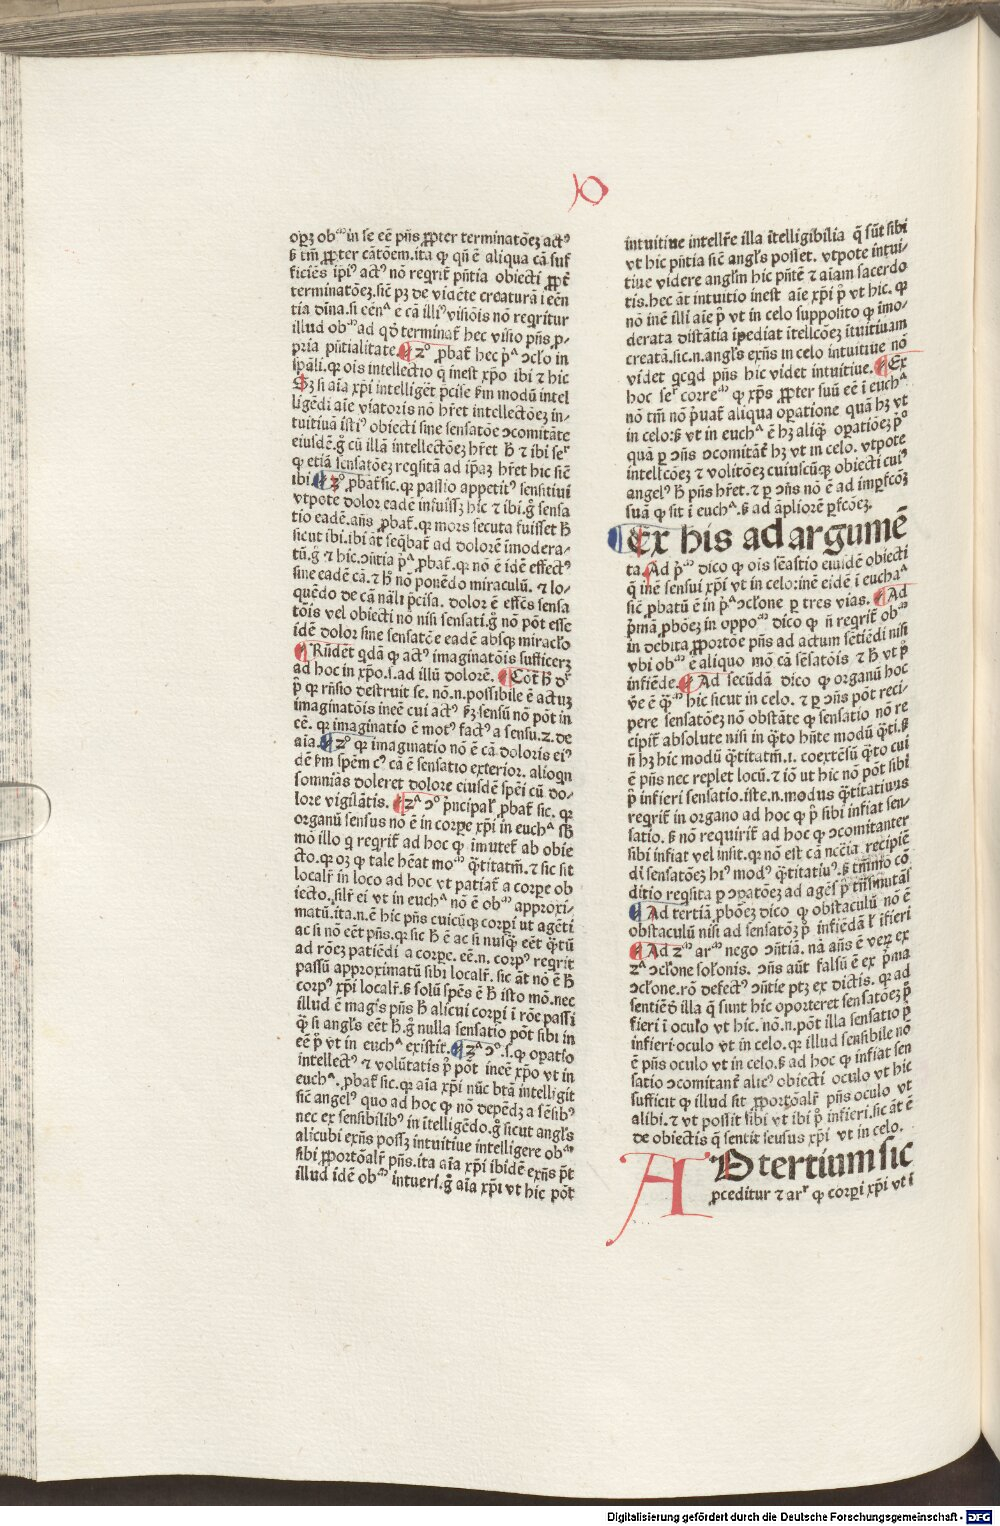 oꝑꝫ obᵐ in se eē pn̄s ꝓpter terminatōeꝫ actꝰ
ß tm̄ ꝓpter cātōem. ita ꝙ qn̄ ē aliqua cā suf
ficiēs ipīꝰ actꝰ nō reqrit̄ pn̄tia obiecti ꝓpt̄
terminatōeꝫ. sic̄ pꝫ de vidēte creaturā ī eēn
tia dīna. si eēnᵃ ē cā illiꝰ visiōis nō reqritur
illud obᵐ ad qď terminat̄ hec visio pn̄s ꝓ-
pria pn̄tialitate. 2° ꝓbat̄ hec pᵃ ↄclo in
spāli. qꝛ ois intellectio q̄ inest xp̄o ibi ⁊ hic
Sꝫ si aīa xp̄i intelliget̄ p̄cise ẜm modū intel
ligēdi aīe viatoris nō hr̄et intellectōeꝫ in-
tuitiuā istiꝰ obiecti sine sensatōe ↄcomitāte
eiusdē. g̊ cū illā intellectōeꝫ hr̄et ħ ⁊ ibi seʳ
ꝙ etiā sensatōeꝫ reqsitā ad ip̄aꝫ hr̄et hic sic̄
ibi. 3° ꝓbat̄ sic. qꝛ passio appetitꝰ sensitiui
vtpote dolor eadē infuisꝫ hic ⁊ ibi. g̊ sensa
tio eadē. an̄s ꝓbat̄. qꝛ mors secuta fuisset ħ
sicut ibi. ibi āt seq̄bat̄ ad dolorē īmodera-
tū. g̊ ⁊ hic. ↄn̄tia pᵃ ꝓbat̄. qꝛ nō ē idē effectꝰ
sine eadē cā. ⁊ ħ nō ponēdo miraculū. ⁊ lo-
quēdo de cā nāli p̄cisa. dolorē effēs sensa
tōis vel obiecti nō nisi sensati. g̊ nō pōt esse
idē dolor sine sensatōe eadē absqꝫ miraclo
Rn̄dēt qdā ꝙ actꝰ imaginatōis sufficerꝫ
ad hoc in xp̄o. s. ad illū dolorē. Cōt̄ ħ dʳ
p̊ ꝙ rn̄sio destruit se. nō. n. possibile ē actuꝫ
imaginatōis ineē cui actꝰ ẜꝫ sensū nō pōt in
eē. qꝛ imaginatio ē motꝰ factꝰ a sensu. 2. de
aīa. 2° ꝙ imaginatio nō ē cā doloris eiꝰ
dē ẜm spēm cꝰ cā ē sensatio exterior. alioqn
somniās doleret dolore eiusdē spēi cū do-
lore vigilātis. 2ᵃ ↄ° pn̄cipal' ꝓbat̄ sic. qꝛ
organū sensus nō ē in corpe xp̄i in euchᵃ sb
mō illo q̄ reqrit̄ ad hoc ꝙ īmutet̄ ab obie
cto. qꝛ oꝫ ꝙ tale hēat moᵐ q̄titatiū. ⁊ sic sit
localr̄ in loco ad hoc vt patiat̄ a corpe ob
iecto. silr̄ ei vt in euchᵃ nō ē obᵐ approxi-
matū. ita. n. ē hic pn̄s cuicūqꝫ corpi ut agēti
ac si nō eēt pn̄s. qꝛ sic ħ ē ac si nusq̄ eēt q̄tū
ad rōeꝫ patiēdi a corpe. eē. n. corpꝰ reqrit
passū approximatū sibi localr̄. sic āt nō ē ħ
corpꝰ xp̄i localr̄. ß solū spēs ē ħ isto mō. nec
illud ē magis pn̄s ħ alicui corpi ī rōe passi
q̄ si angl's eēt ħ. g̊ nulla sensatio pōt sibi in
eē p̊ vt in euchᵃ existit. 3ᵃ ↄ°. s. ꝙ opatio
intellectꝰ ⁊ volūtatis p̊ pōt ineē xp̄o vt in
euchᵃ. ꝓbat̄ sic. qꝛ aīa xp̄i nūc btā intelligit
sic̄ angelꝰ quo ad hoc ꝙ nō depēdꝫ a sēsibꝰ
nec ex sensibilibꝰ in ītelligēdo. g̊ sicut angl's
alicubi exn̄s possꝫ intuitiue intelligere obᵐ
sibi ꝓportōalr̄ pn̄s. ita aīa xp̄i ibidē exn̄s p̄t
illud idē obᵐ intueri. g̊ aīa xp̄i vt hic pōt
intuitiue intellr̄e illa ītelligibilia q̄ sūt sibi
vt hic pn̄tia sic̄ angl's posset. vtpote intui-
tiue videre angl'm hic pn̄tē ⁊ aīam sacerdo
tis. hec āt intuitio inest aīe xp̄i p̊ vt hic. qꝛ
nō inē illi aīe p̊ vt in celo supposito ꝙ īmo-
derata distātia īpediat ītellcōeꝫ ītuitiuam
creatā. sic. n. angl's exn̄s in celo intuitiue nō
videt qcqd pn̄s hic videt intuitiue. Ex
hoc seʳ correᵐ ꝙ xp̄s ꝓpter suū eē ī euchᵃ
nō tm̄ nō p̄uat̄ aliqua opatione quā hꝫ vt
in celo: ß vt in euchᵃ ē hꝫ aliq̄ opatiōeꝫ p̊
quā ꝑ ↄn̄s ↄcomitāt̄ hꝫ vt in celo. vtpote
intellcōeꝫ ⁊ volitōeꝫ cuiuscūqꝫ obiecti cuiꝰ
angelꝰ ħ pn̄s hr̄et. ⁊ ꝑ ↄn̄s nō ē ad imꝑfcōꝫ
suā ꝙ sit ī euchᵃ. ß ad āpliorē ꝑfcōeꝫ.
Ex his ad argumē
ta. Ad pᵐ dico ꝙ ois sēsatio eiusdē obiecti
q̄ inē sensui xp̄i vt in celo: inē eidē ī euchaᵃ
sic̄ ꝓbatū ē in pᵃ ↄclone ꝑ tres vias. Ad
p̄mā ꝓbōeꝫ in oppoᵐ dico ꝙ n̄ reqrit̄ obᵐ
in debita ꝓportōe pn̄s ad actum sētiēdi nisi
vbi obᵐ ē aliquo mō cā sēsatōis ⁊ ħ vt p̊
infiēde. Ad secūdā dico ꝙ organū hoc
ve ē q̄ᵐ hic sicut in celo. ⁊ ꝑ ↄn̄s pōt reci-
pere sensatōeꝫ nō obstāte ꝙ sensatio nō re
cipit̄ absolute nisi in q̄to hn̄te modū q̄ti. ß
n̄ hꝫ hic modū q̄titatiū. i. coextēsū q̄to cui
ē pn̄s nec replet locū. ⁊ iō ut hic nō pōt sibi
p̊ infieri sensatio. iste. n. modus q̄titatiuus
reqrit̄ in organo ad hoc ꝙ p̊ sibi infiat sen-
satio. ß nō requirit̄ ad hoc ꝙ ↄcomitanter
sibi infiat vel insit. qꝛ nō est cā nccīa recipiē
di sensatōeꝫ hiꝰ modꝰ q̄titatiuꝰ. ß tm̄mo cō
ditio reqsita ꝑ ↄpatōeꝫ ad agēs p̊ trāsmutās
Ad tertiā ꝓbōeꝫ dico ꝙ obstaculū nō ē
obstaculū nisi ad sensatōꝫ p̊ infiēdā l' ifieri
Ad 2ᵐ arᵐ nego ↄn̄tiā. nā an̄s ē veꝝ ex
2ᵃ ↄclone solonis. ↄn̄s aūt falsū ē ex p̄ma
ↄclone. rō defectꝰ ↄn̄tie ptꝫ ex dictis. qꝛ ad
sentiēď illa q̄ sunt hic oporteret sensatōeꝫ p̊
fieri ī oculo vt hic. nō. n. pōt illa sensatio p̊
infieri oculo vt in celo. qꝛ illud sensibile nō
ē pn̄s oculo vt in celo. ß ad hoc ꝙ infiat sen
satio ↄcomitant̄ alicꝰ obiecti oculo vt hic
sufficit ꝙ illud sit ꝓportōalr̄ pn̄s oculo vt
alibi. ⁊ vt possit sibi vt ibi p̊ infieri. sic āt ē
de obiectis q̄ sentit seusus xp̄i vt in celo.
AD tertium sic
ꝓceditur ⁊ arʳ ꝙ corpi xp̄i vt ī
Digitalisierung gefördert durch die Deutsche Forschungsgemeinschaft - DFG